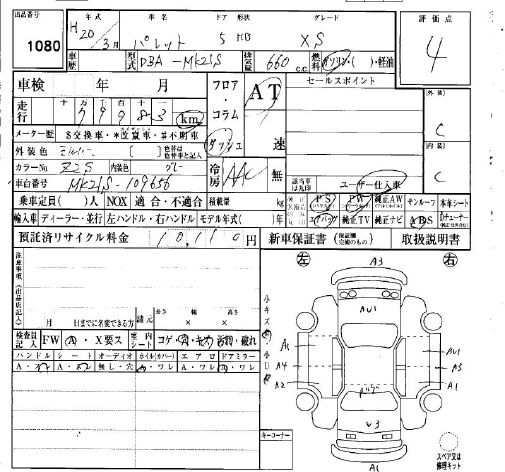 出品番号 1080
年式 車名 ドア 形状 グレード 評価点
H20 3月 パレット 5 HB XS 4
車歴 型式 DBA-MK21S 排気量 660 c.c. 燃料 ガソリン・( )・軽油
車検 年 月 フロア・コラム・ダッシュ AT 速 セールスポイント
走行 十 万 千 百 十 79983 km
メーター歴 $交換車・*改竄車・#不明車
外装色 [ ] 色替は色替車と記入 外装 C
カラーNo. Z2S 内装色 グレー 冷房 AAC 無 内装 C
車台番号 MK21S-109656 該当車は丸印 ユーザー仕入車
乗車定員( )人 NOX 適合・不適合 積載量 kg PS PW 純正AW サンルーフ 本革シート
輸入車 ディーラー・並行 左ハンドル・右ハンドル モデル年式( )年 エアバッグ 純正TV 純正ナビ ABS Dチューナー
預託済リサイクル料金 10,110円 新車保証書 (保証欄記載のもの) 取扱説明書
注意事項(出品店記入)
月 日までに名変できる方 諸元 長さ × 幅 × 高さ
検査員記入 FW A・X要ス 室内シート コゲ・A・キズ・汚物・破れ
ハンドル シート オーディオ ホイル(カバー) エアロ ドアミラー
A・ A・ 無し・穴 A・ワレ A・ワレ A・ワレ
キーコーナー
左 右
A3
AU1
A1 AU1
A4 A3
A2 A1
W3
A1
スペア又は修理キット